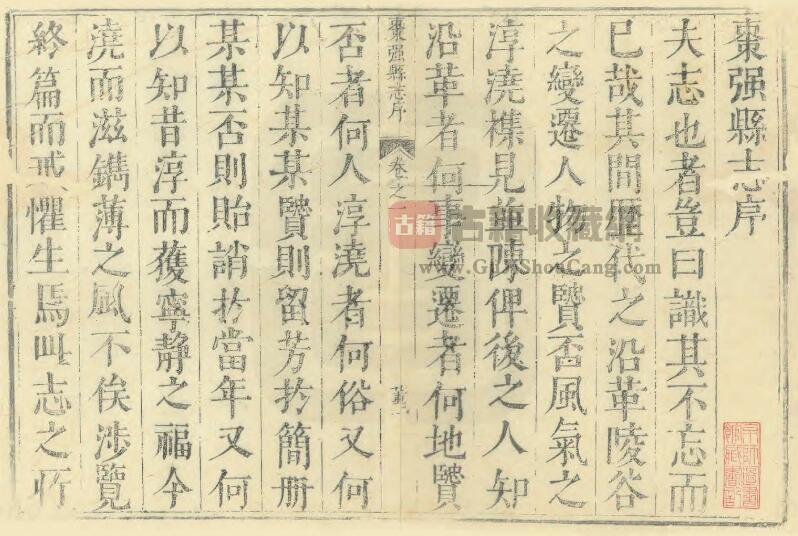 棗强縣志序
夫志也者豈曰識其不忘而
已哉其間歷代之沿革陵谷
之變遷人物之贒否風氣之
淳澆襍見陳俾後之人知
沿革者何事變遷者何地贒
棗强縣志序 卷之一
否者何人淳澆者何俗又何
以知某某贒則留芳扵簡册
某某否則貽誚扵當年又何
以知昔淳而獲寧静之福今
澆而滋鐫薄之風不俟涉覽
終篇而戒懼生焉此志之所
古籍
古籍收藏網
www.GuJiShouCang.com